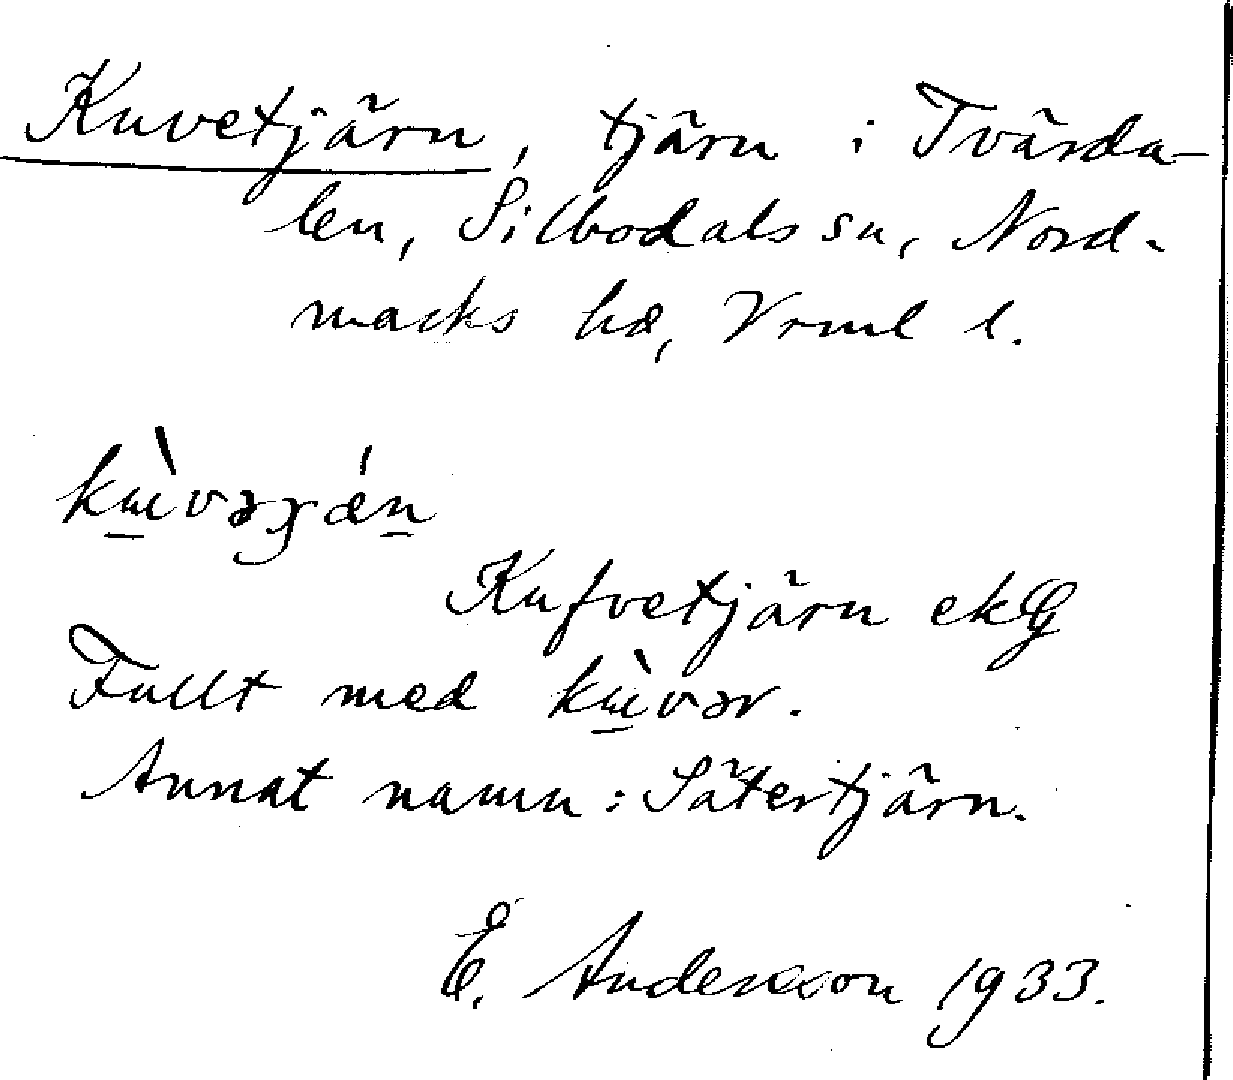 Kuvetjärn, tjärn i Tvärda-
len, Silbodals sn, Nord-
marks hd, Vrml l.
kɯ̀vəɣǽn
Kufvetjärn ekG
Fullt med kɯ̀vər.
Annat namn: Sätertjärn.
E. Andersson 1933.